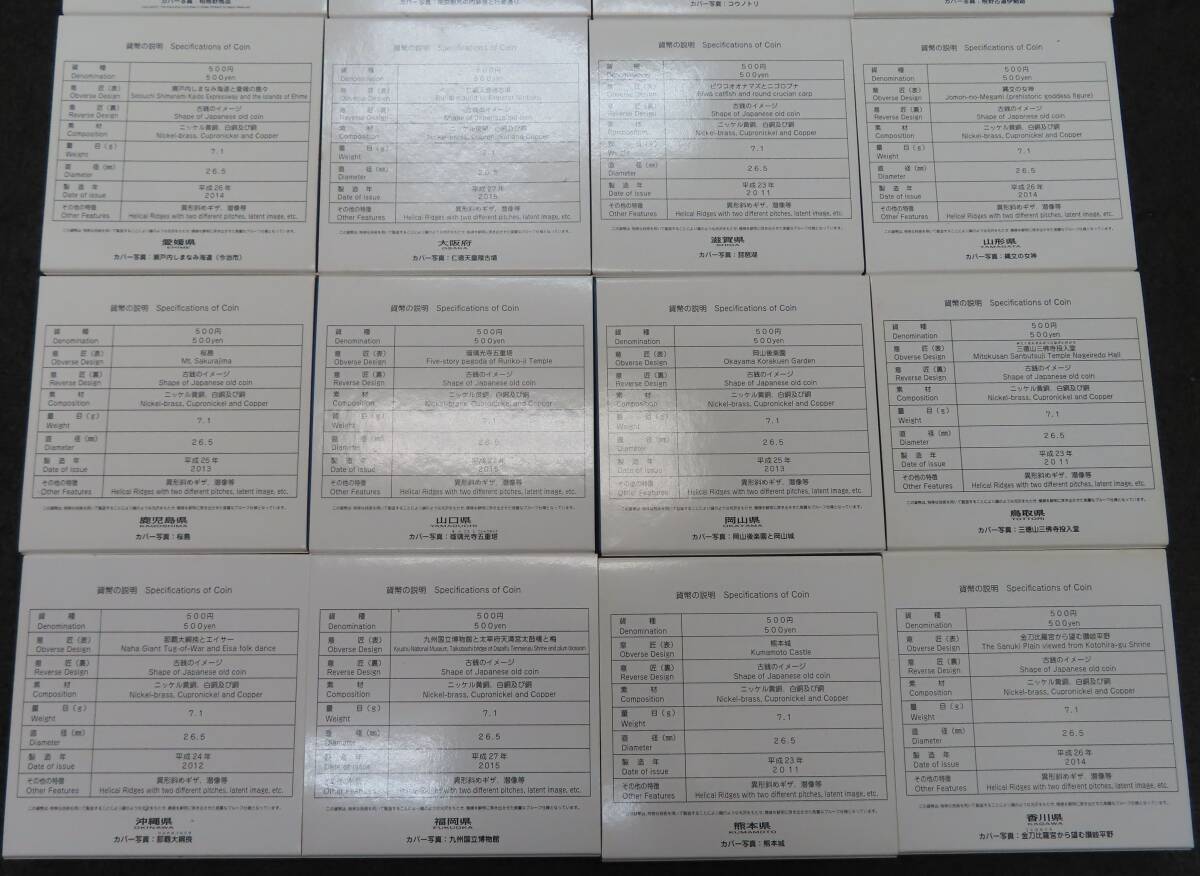 カバー写真：コウノトリ
貨幣の説明 Specifications of Coin
貨種 Denomination 500円 500yen
意匠(表) Obverse Design 瀬戸内しまなみ海道と愛媛の島々 Setouchi Shimanami Kaido Expressway and the islands of Ehime
意匠(裏) Reverse Design 古銭のイメージ Shape of Japanese old coin
素材 Composition ニッケル黄銅、白銅及び銅 Nickel-brass, Cupronickel and Copper
量目(g) Weight 7.1
直径(㎜) Diameter 26.5
製造年 Date of issue 平成26年 2014
その他の特徴 Other Features 異形斜めギザ、潜像等 Helical Ridges with two different pitches, latent image, etc.
愛媛県
EHIME
カバー写真：瀬戸内しまなみ海道（今治市）
貨幣の説明 Specifications of Coin
貨種 Denomination 500円 500yen
意匠(表) Obverse Design
意匠(裏) Reverse Design 古銭のイメージ Shape of Japanese old coin
素材 Composition ニッケル黄銅、白銅及び銅 Nickel-brass, Cupronickel and Copper
量目(g) Weight 7.1
直径(㎜) Diameter 26.5
製造年 Date of issue 平成27年 2015
その他の特徴 Other Features 異形斜めギザ、潜像等 Helical Ridges with two different pitches, latent image, etc.
大阪府
OSAKA
カバー写真：仁徳天皇陵古墳
貨幣の説明 Specifications of Coin
貨種 Denomination 500円 500yen
意匠(表) Obverse Design ビワコオオナマズとニゴロブナ Biwa catfish and round crucian carp
意匠(裏) Reverse Design 古銭のイメージ Shape of Japanese old coin
素材 Composition ニッケル黄銅、白銅及び銅 Nickel-brass, Cupronickel and Copper
量目(g) Weight 7.1
直径(㎜) Diameter 26.5
製造年 Date of issue 平成23年 2011
その他の特徴 Other Features 異形斜めギザ、潜像等 Helical Ridges with two different pitches, latent image, etc.
滋賀県
SHIGA
カバー写真：琵琶湖
貨幣の説明 Specifications of Coin
貨種 Denomination 500円 500yen
意匠(表) Obverse Design 縄文の女神 Jomon-no-Megami (prehistoric goddess figure)
意匠(裏) Reverse Design 古銭のイメージ Shape of Japanese old coin
素材 Composition ニッケル黄銅、白銅及び銅 Nickel-brass, Cupronickel and Copper
量目(g) Weight 7.1
直径(㎜) Diameter 26.5
製造年 Date of issue 平成26年 2014
その他の特徴 Other Features 異形斜めギザ、潜像等 Helical Ridges with two different pitches, latent image, etc.
山形県
YAMAGATA
カバー写真：縄文の女神
貨幣の説明 Specifications of Coin
貨種 Denomination 500円 500yen
意匠(表) Obverse Design 桜島 Mt. Sakurajima
意匠(裏) Reverse Design 古銭のイメージ Shape of Japanese old coin
素材 Composition ニッケル黄銅、白銅及び銅 Nickel-brass, Cupronickel and Copper
量目(g) Weight 7.1
直径(㎜) Diameter 26.5
製造年 Date of issue 平成25年 2013
その他の特徴 Other Features 異形斜めギザ、潜像等 Helical Ridges with two different pitches, latent image, etc.
鹿児島県
KAGOSHIMA
カバー写真：桜島
貨幣の説明 Specifications of Coin
貨種 Denomination 500円 500yen
意匠(表) Obverse Design 瑠璃光寺五重塔 Five-story pagoda of Ruriko-ji Temple
意匠(裏) Reverse Design 古銭のイメージ Shape of Japanese old coin
素材 Composition ニッケル黄銅、白銅及び銅 Nickel-brass, Cupronickel and Copper
量目(g) Weight 7.1
直径(㎜) Diameter 26.5
製造年 Date of issue 平成27年 2015
その他の特徴 Other Features 異形斜めギザ、潜像等 Helical Ridges with two different pitches, latent image, etc.
山口県
YAMAGUCHI
カバー写真：瑠璃光寺五重塔
貨幣の説明 Specifications of Coin
貨種 Denomination 500円 500yen
意匠(表) Obverse Design 岡山後楽園 Okayama Korakuen Garden
意匠(裏) Reverse Design 古銭のイメージ Shape of Japanese old coin
素材 Composition ニッケル黄銅、白銅及び銅 Nickel-brass, Cupronickel and Copper
量目(g) Weight 7.1
直径(㎜) Diameter 26.5
製造年 Date of issue 平成25年 2013
その他の特徴 Other Features 異形斜めギザ、潜像等 Helical Ridges with two different pitches, latent image, etc.
岡山県
OKAYAMA
カバー写真：岡山後楽園と岡山城
貨幣の説明 Specifications of Coin
貨種 Denomination 500円 500yen
意匠(表) Obverse Design 三徳山三佛寺投入堂 Mitokusan Sanbutsuji Temple Nageiredo Hall
意匠(裏) Reverse Design 古銭のイメージ Shape of Japanese old coin
素材 Composition ニッケル黄銅、白銅及び銅 Nickel-brass, Cupronickel and Copper
量目(g) Weight 7.1
直径(㎜) Diameter 26.5
製造年 Date of issue 平成23年 2011
その他の特徴 Other Features 異形斜めギザ、潜像等 Helical Ridges with two different pitches, latent image, etc.
鳥取県
TOTTORI
カバー写真：三徳山三佛寺投入堂
貨幣の説明 Specifications of Coin
貨種 Denomination 500円 500yen
意匠(表) Obverse Design 那覇大綱挽とエイサー Naha Giant Tug-of-War and Eisa folk dance
意匠(裏) Reverse Design 古銭のイメージ Shape of Japanese old coin
素材 Composition ニッケル黄銅、白銅及び銅 Nickel-brass, Cupronickel and Copper
量目(g) Weight 7.1
直径(㎜) Diameter 26.5
製造年 Date of issue 平成24年 2012
その他の特徴 Other Features 異形斜めギザ、潜像等 Helical Ridges with two different pitches, latent image, etc.
沖縄県
OKINAWA
カバー写真：那覇大綱挽
貨幣の説明 Specifications of Coin
貨種 Denomination 500円 500yen
意匠(表) Obverse Design 九州国立博物館と太宰府天満宮太鼓橋と梅 Kyushu National Museum, Taikobashi bridge of Dazaifu Tenmangu Shrine and plum blossom
意匠(裏) Reverse Design 古銭のイメージ Shape of Japanese old coin
素材 Composition ニッケル黄銅、白銅及び銅 Nickel-brass, Cupronickel and Copper
量目(g) Weight 7.1
直径(㎜) Diameter 26.5
製造年 Date of issue 平成27年 2015
その他の特徴 Other Features 異形斜めギザ、潜像等 Helical Ridges with two different pitches, latent image, etc.
福岡県
FUKUOKA
カバー写真：九州国立博物館
貨幣の説明 Specifications of Coin
貨種 Denomination 500円 500yen
意匠(表) Obverse Design 熊本城 Kumamoto Castle
意匠(裏) Reverse Design 古銭のイメージ Shape of Japanese old coin
素材 Composition ニッケル黄銅、白銅及び銅 Nickel-brass, Cupronickel and Copper
量目(g) Weight 7.1
直径(㎜) Diameter 26.5
製造年 Date of issue 平成23年 2011
その他の特徴 Other Features 異形斜めギザ、潜像等 Helical Ridges with two different pitches, latent image, etc.
熊本県
KUMAMOTO
カバー写真：熊本城
貨幣の説明 Specifications of Coin
貨種 Denomination 500円 500yen
意匠(表) Obverse Design 金刀比羅宮から望む讃岐平野 The Sanuki Plain viewed from Kotohira-gu Shrine
意匠(裏) Reverse Design 古銭のイメージ Shape of Japanese old coin
素材 Composition ニッケル黄銅、白銅及び銅 Nickel-brass, Cupronickel and Copper
量目(g) Weight 7.1
直径(㎜) Diameter 26.5
製造年 Date of issue 平成26年 2014
その他の特徴 Other Features 異形斜めギザ、潜像等 Helical Ridges with two different pitches, latent image, etc.
香川県
KAGAWA
カバー写真：金刀比羅宮から望む讃岐平野